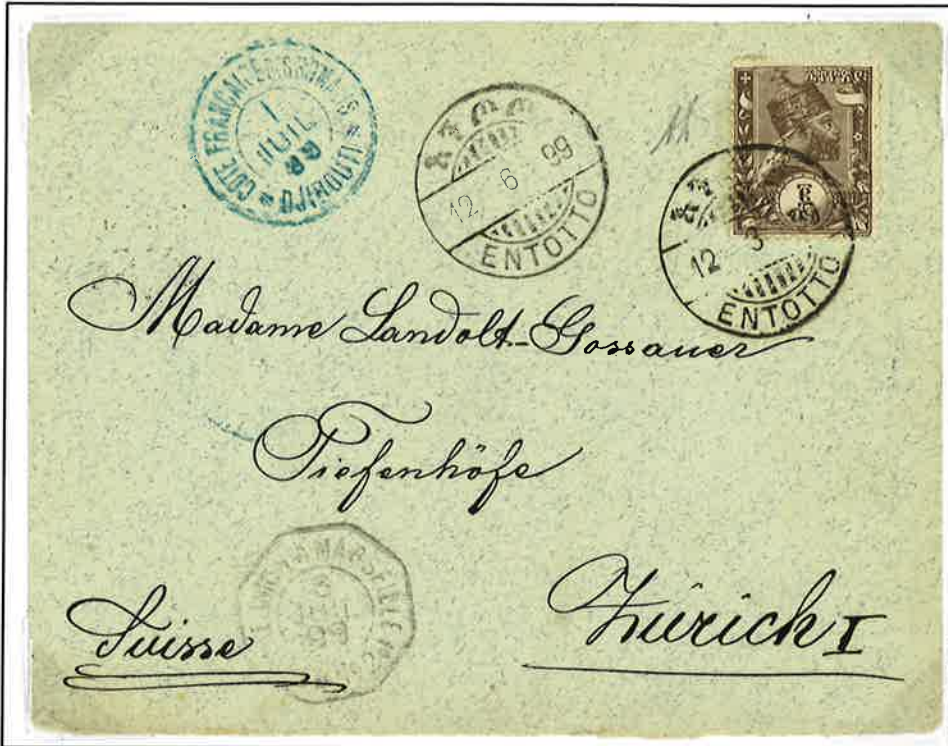 COTE FRANÇAISE DES SOMALIS
1
JUIL
99
DJIBOUTI
12 6 99
ENTOTTO
12
ENTOTTO
Madame Landolt-Gossauer
Tiefenhöfe
Zürich I
Suisse
MARSEILLE